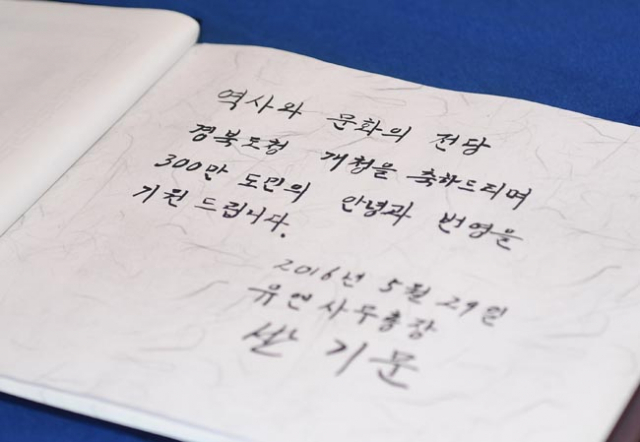 역사와 문화의 전당
경북도청 개청을 축하드리며
300만 도민의 안녕과 번영을
기원 드립니다.
2016년 5월 29일
유엔사무총장
반기문